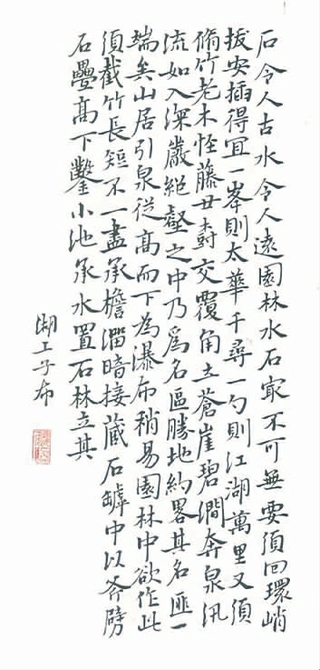 石令人古水令人遠園林水石最不可無要須回環峭
拔安插得宜一峯則太華千尋一勺則江湖萬里又須
脩竹老木怪藤丑樹交覆角立蒼崖碧澗奔泉汛
流如入深巖絕壑之中乃為名區勝地約畧其名匪一
端矣山居引泉從高而下為瀑布稍易園林中欲作此
須截竹長短不一盡承檐溜暗接藏石罅中以斧劈
石疊高下鑿小池承水置石林立其
湖工子布